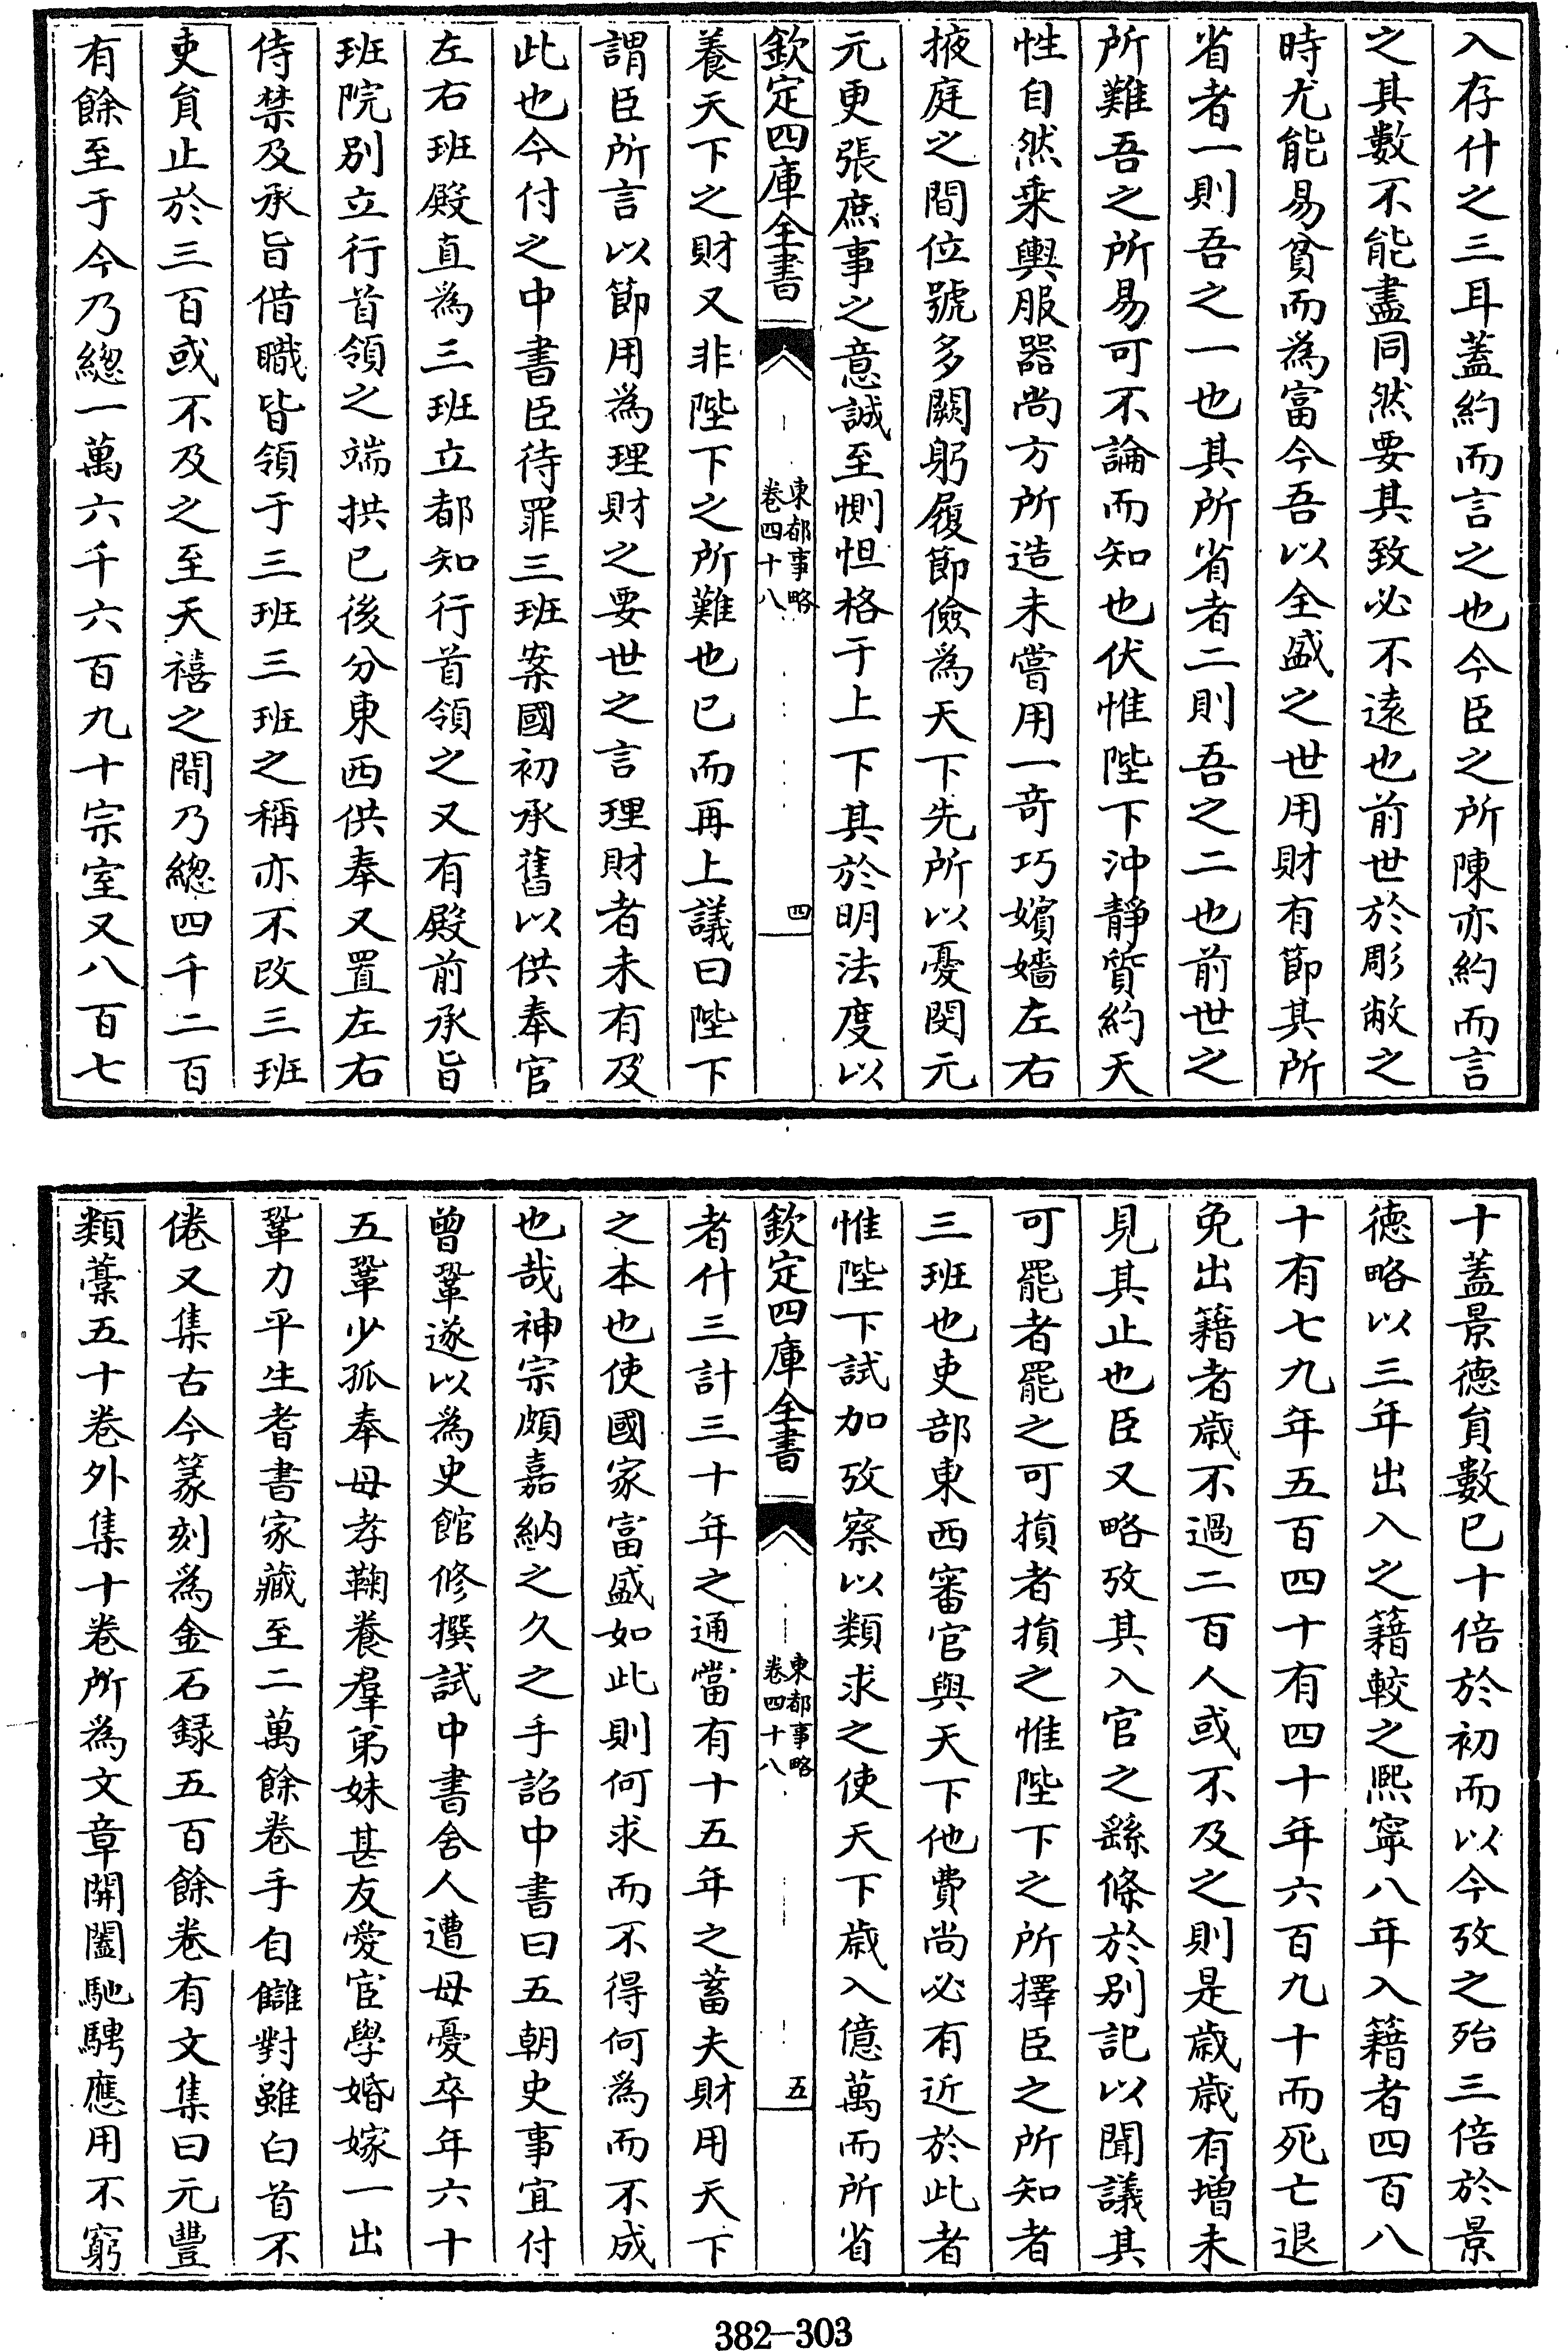 入存什之三耳蓋約而言之也今臣之所陳亦約而言
之其數不能盡同然要其致必不逺也前世於彫敝之
時尤能易貧而為富今吾以全盛之世用財有節其所
省者一則吾之一也其所省者二則吾之二也前世之
所難吾之所易可不論而知也伏惟陛下沖靜質約天
性自然乗輿服器尚方所造未嘗用一竒巧嬪嬙左右
掖庭之間位號多闕躬履節儉為天下先所以憂閔元
元更張庶事之意誠至惻怛格于上下其於明法度以
欽定四庫全書
東都事略
卷四十八
四
養天下之財又非陛下之所難也已而再上議曰陛下
謂臣所言以節用為理財之要世之言理財者未有及
此也今付之中書臣待罪三班案國初承舊以供奉官
左右班殿直為三班立都知行首領之又有殿前承旨
班院別立行首領之端拱已後分東西供奉又置左右
侍禁及承旨借職皆領于三班三班之稱亦不改三班
吏貟止於三百或不及之至天禧之間乃總四千二百
有餘至于今乃總一萬六千六百九十宗室又八百七
十蓋景德貟數已十倍於初而以今攷之殆三倍於景
德略以三年出入之籍較之熙寧八年入籍者四百八
十有七九年五百四十有四十年六百九十而死亡退
免出籍者歲不過二百人或不及之則是歲歲有增未
見其止也臣又略攷其入官之繇條於別記以聞議其
可罷者罷之可損者損之惟陛下之所擇臣之所知者
三班也吏部東西審官與天下他費尚必有近於此者
惟陛下試加攷察以類求之使天下歲入億萬而所省
欽定四庫全書
東都事略
卷四十八
五
者什三計三十年之通當有十五年之蓄夫財用天下
之本也使國家富盛如此則何求而不得何為而不成
也哉神宗頗嘉納之久之手詔中書曰五朝史事宜付
曾鞏遂以為史館修撰試中書舍人遭母憂卒年六十
五鞏少孤奉母孝鞠養羣弟妹甚友愛宦學婚嫁一出
鞏力平生耆書家藏至二萬餘卷手自讎對雖白首不
倦又集古今篆刻為金石録五百餘卷有文集曰元豐
類藁五十卷外集十卷所為文章開闔馳騁應用不窮
382-303